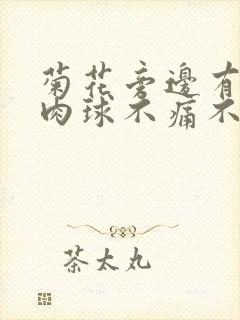 菊花旁邊有
肉球不痛不
茶太丸